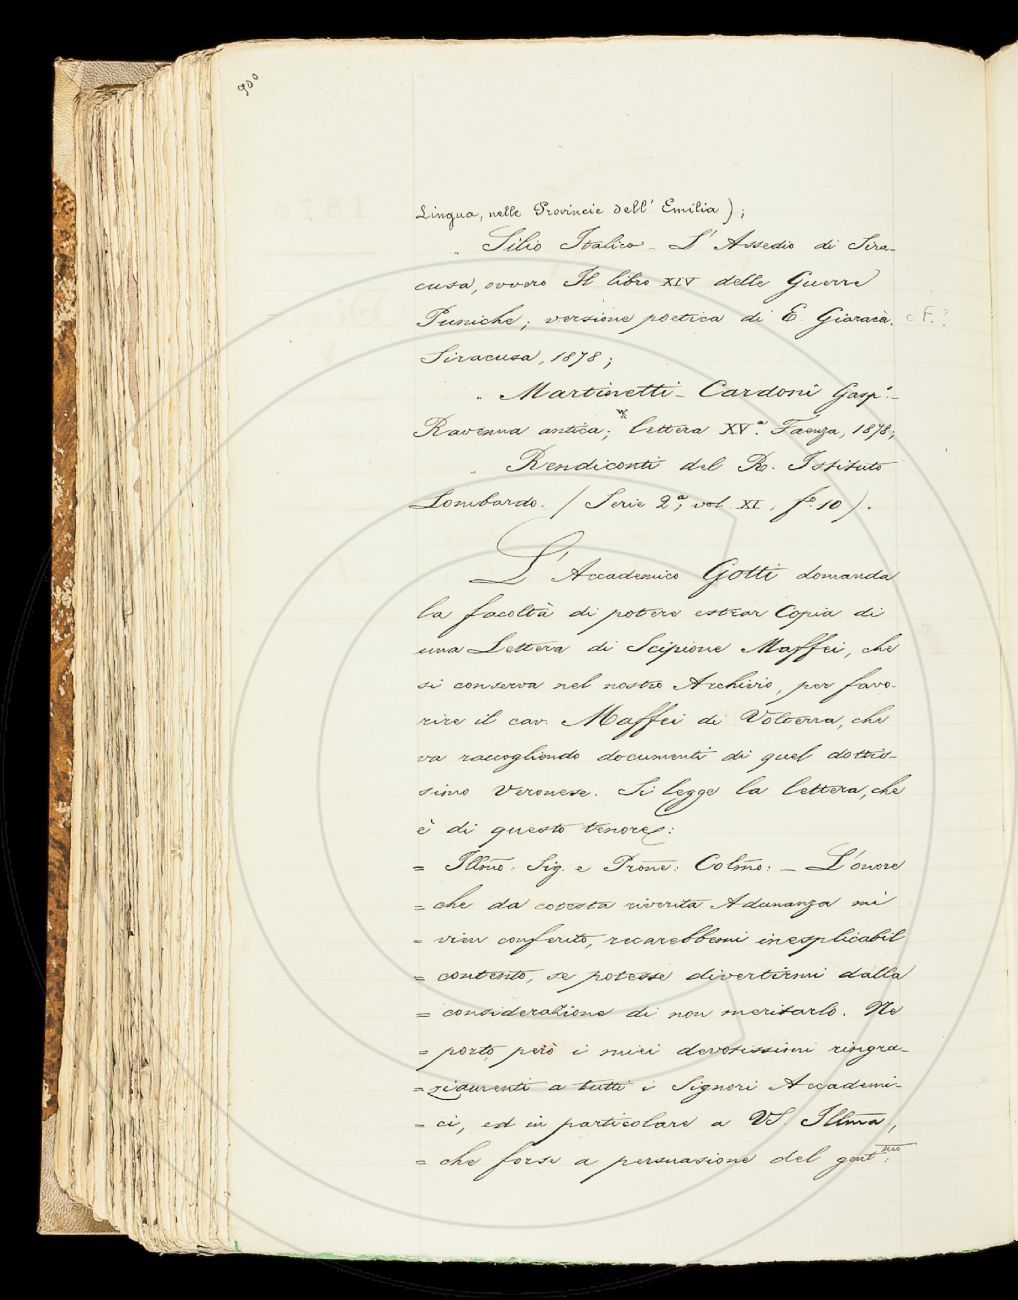 900
Lingua, nelle Provincie dell' Emilia);
" Silio Italico - L'Assedio di Sira-
cusa, ovvero Il libro XIV delle Guerre
Puniche; versione poetica di E. Giaracà.
F.?
Siracusa, 1878;
" Martinetti - Cardoni Gasp.e -
Ravenna antica; lettera XV.a Faenza, 1878;
" Rendiconti del R. Istituto
Lombardo. (Serie 2.a, vol. XI, f.o 10).
L'Accademico Gotti domanda
la facoltà di potere estrar Copia di
una Lettera di Scipione Maffei, che
si conserva nel nostro Archivio, per favo-
rire il cav. Maffei di Volterra, che
va raccogliendo documenti di quel dottis-
simo Veronese. Si legge la lettera, che
è di questo tenore:
= Illmo. Sig. e Prone: Colmo: - L'onore
= che da cotesta riverita Adunanza mi
= vien conferito, recarebbemi inesplicabil
= contento, se potesse divertirmi dalla
= considerazione di non meritarlo. Ne
= porto però i miei devotissimi ringra-
= ziamenti a tutti i Signori Accademi-
= ci, ed in particolare a VS. Illma,
= che forse a persuasione del gent.mo: